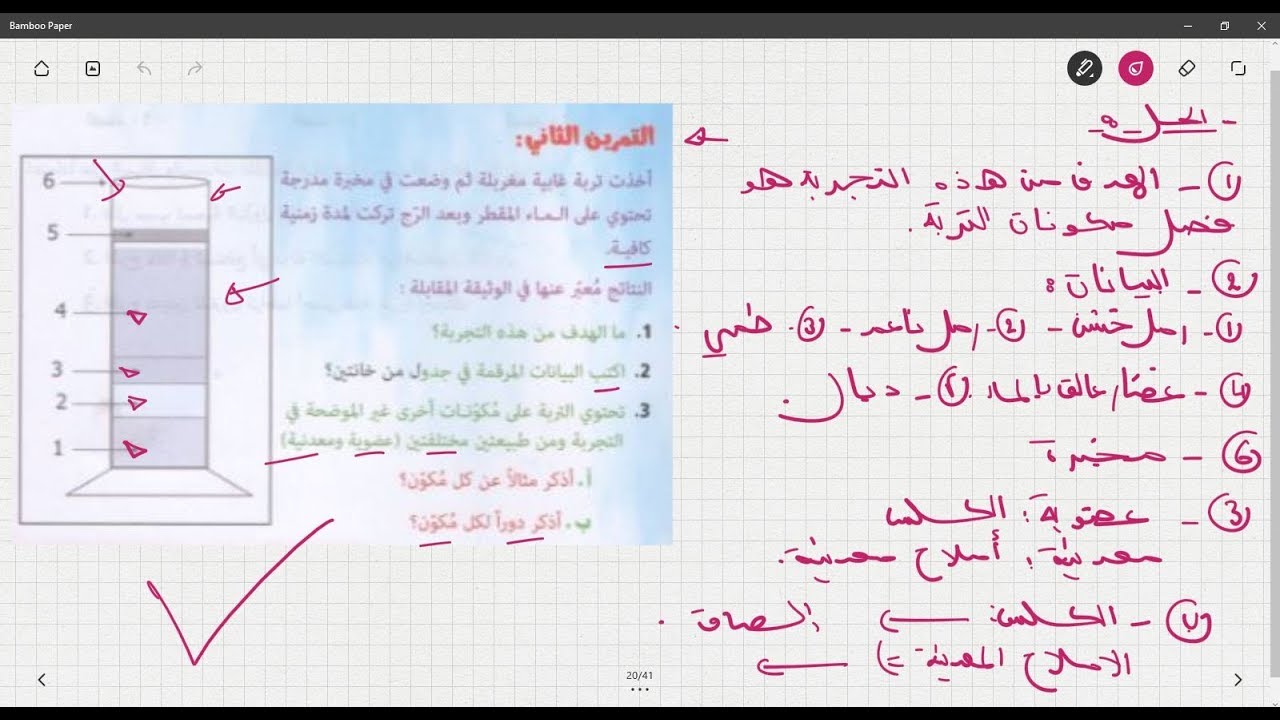 Bamboo Paper
التمرين الثاني:
أخذت تربة غابية مغربلة ثم وضعت في مخبرة مدرجة
تحتوي على الماء المقطر وبعد الرّج تركت لمدة زمنية
كافية.
النتائج مُعبّر عنها في الوثيقة المقابلة :
1. ما الهدف من هذه التجربة؟
2. اكتب البيانات المرقمة في جدول من خانتين؟
3. تحتوي التربة على مُكوّنات أخرى غير الموضحة في
التجربة ومن طبيعتين مختلفتين (عضوية ومعدنية)
أ. أذكر مثالاً عن كل مُكوّن؟
ب. أذكر دوراً لكل مُكوّن؟
6
5
4
3
2
1
- الحل:
① - الهدف من هذه التجربة هو
فصل مكونات التربة.
② - البيانات:
① - رمل خشن - ② - رمل ناعم - ③ - طمي.
④ - عالق بالماء. - دبال.
⑥ - مخبرة
③ - عضوية: الكلس
معدنية: أملاح معدنية.
ب - الكلس:
الاملاح المعدنية
20/41